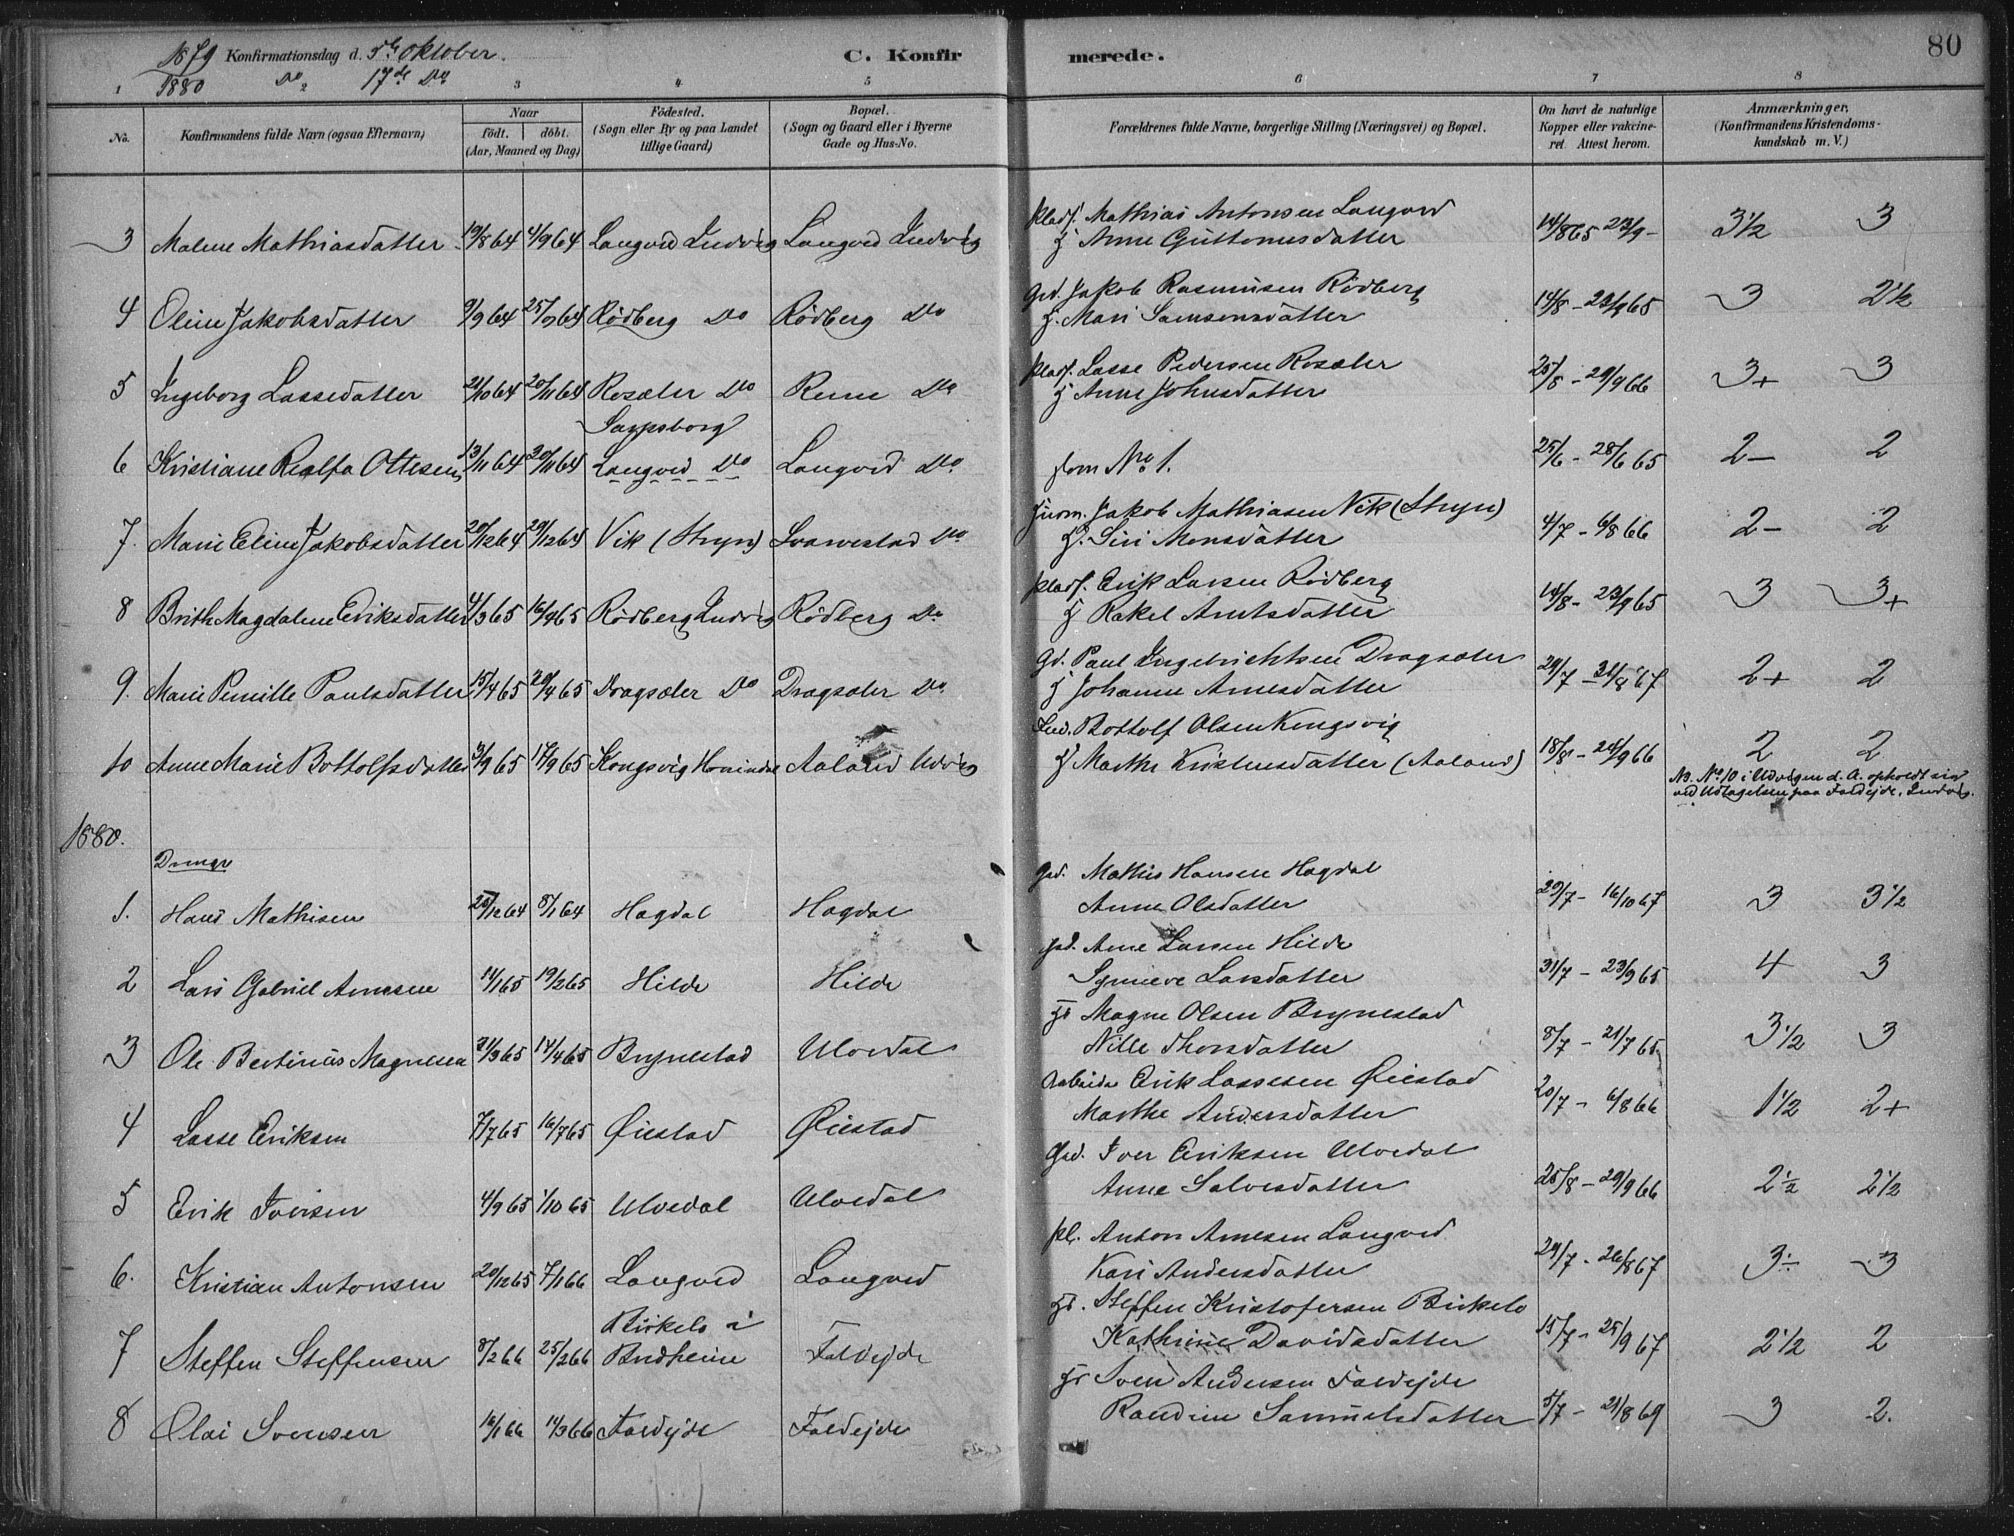 1879 Konfirmationsdag d. 5te Oktober. C. Konfirmerede. 80
1880 Do 17de Do
1 2 3 4 5 6 7 8
No. Konfirmandens fulde Navn (ogsaa Efternavn) Naar født. døbt. (Aar, Maaned og Dag) Fødested. (Sogn eller By og paa Landet tillige Gaard) Bopæl. (Sogn og Gaard eller i Byerne Gade og Hus-No. Forældrenes fulde Navne, borgerlige Stilling (Næringsvei) og Bopæl. Om havt de naturlige Kopper eller vakcineret. Attest herom. Anmærkninger. (Konfirmandens Kristendomskundskab m. V.)
plads. Mathias Antonsen Langved
3 Malene Mathiasdatter 19/8 64 4/9 64 Langved Indvig Langved Indvig H Anne Guttormsdatter 14/8 65 - 23/9 - 3 1/2 3
Grd. Jakob Rasmusen Rödberg
4 Oline Jakobsdatter 9/9 64 64 Rödberg Do Rödberg Do H. Mari Samsonsdatter 14/8 - 23/9 65 3 2 1/2
plads. Lasse Pedersen Rosæter
5 Ingeborg Lassedatter 2/10 64 20/11 64 Rosæter Do Renne Do H Anne Johnsdatter 25/8 - 29/9 66 3+ 3
Sarpsborg
6 Kristiane Realfa Ottesen 13/11 64 20/11 64 Langved Do Langved Do som No 1. 25/6 - 28/6 65 2- 2
Jakob Mathiasen Vik (Stryn)
7. Marie Eline Jakobsdatter 20/12 64 29/12 64 Vik (Stryn) Svarvestad Do H. Siri Monsdatter 4/7 - 6/8 66 2- 2
plads. Erik Larsen Rödberg
8 Brith Magdalene Eriksdatter 4/3 65 16/4 65 Rödberg Indvig Rödberg Do H Rakel Antsdatter 14/8 - 23/9 65 3 3+
Gd. Paul Ingebrichtsen Dragsæter
9. Marie Pernille Paulsdatter 15/4 65 29/4 65 Dragsæter Do Dragsæter Do H Johanne Arnesdatter 29/7 - 31/8 67 2+ 2
Ind. Bottolf Olsen Kongsvig
10 Anne Marie Bottolfsdatter 3/9 65 17/9 65 Kongsvig Hornindal Aaland Udvig H Marthe Kristensdatter (Aaland) 18/8 - 24/9 66 2 2
No. No 10 i Udvigen d. A. opholdt sig
ved Udtagelsen paa Faleide, Indvig.
1880.
Drenge
Grd. Mathis Hansen Hagdal
1. Hans Mathisen 25/12 64 8/1 64 Hagdal Hagdal Anne Olsdatter 29/7 - 16/10 67 3 3 1/2
Grd. Arne Larsen Hilde
2 Lars Gabriel Arnesen 14/1 65 19/2 65 Hilde Hilde Synneve Larsdatter 31/7 - 23/9 65 4 3
Magne Olsen Brynestad
3 Ole Bertinus Magnesen 21/3 65 14/4 65 Brynestad Ulvedal Nille Thorsdatter 8/7 - 21/7 65 3 1/2 3
Arbeider Erik Lassesen Øiestad
4 Lasse Eriksen 7/7 65 16/7 65 Øiestad Øiestad Marthe Andersdatter 20/7 - 6/8 66 1 1/2 2+
Grd. Iver Eriksen Ulvedal
5 Erik Iversen 4/9 65 1/10 65 Ulvedal Ulvedal Anne Salvesdatter 25/8 - 29/9 66 2 1/2 2 1/2
pl. Anton Arnesen Langved
6. Kristian Antonsen 20/12 65 7/1 66 Langved Langved Kari Andersdatter 29/7 - 26/8 67 3÷ 3
Birkelo i Steffen Kristofersen Birkelo
7 Steffen Steffensen 8/2 66 25/2 66 Bredheim Faleide Kathrine Davidsdatter 15/7 - 25/9 67 2 1/2 2
Sven Andersen Faleide
8 Olai Svensen 16/1 66 14/3 66 Faleide Faleide Randine Samuelsdatter 5/7 - 21/8 69 3 2.